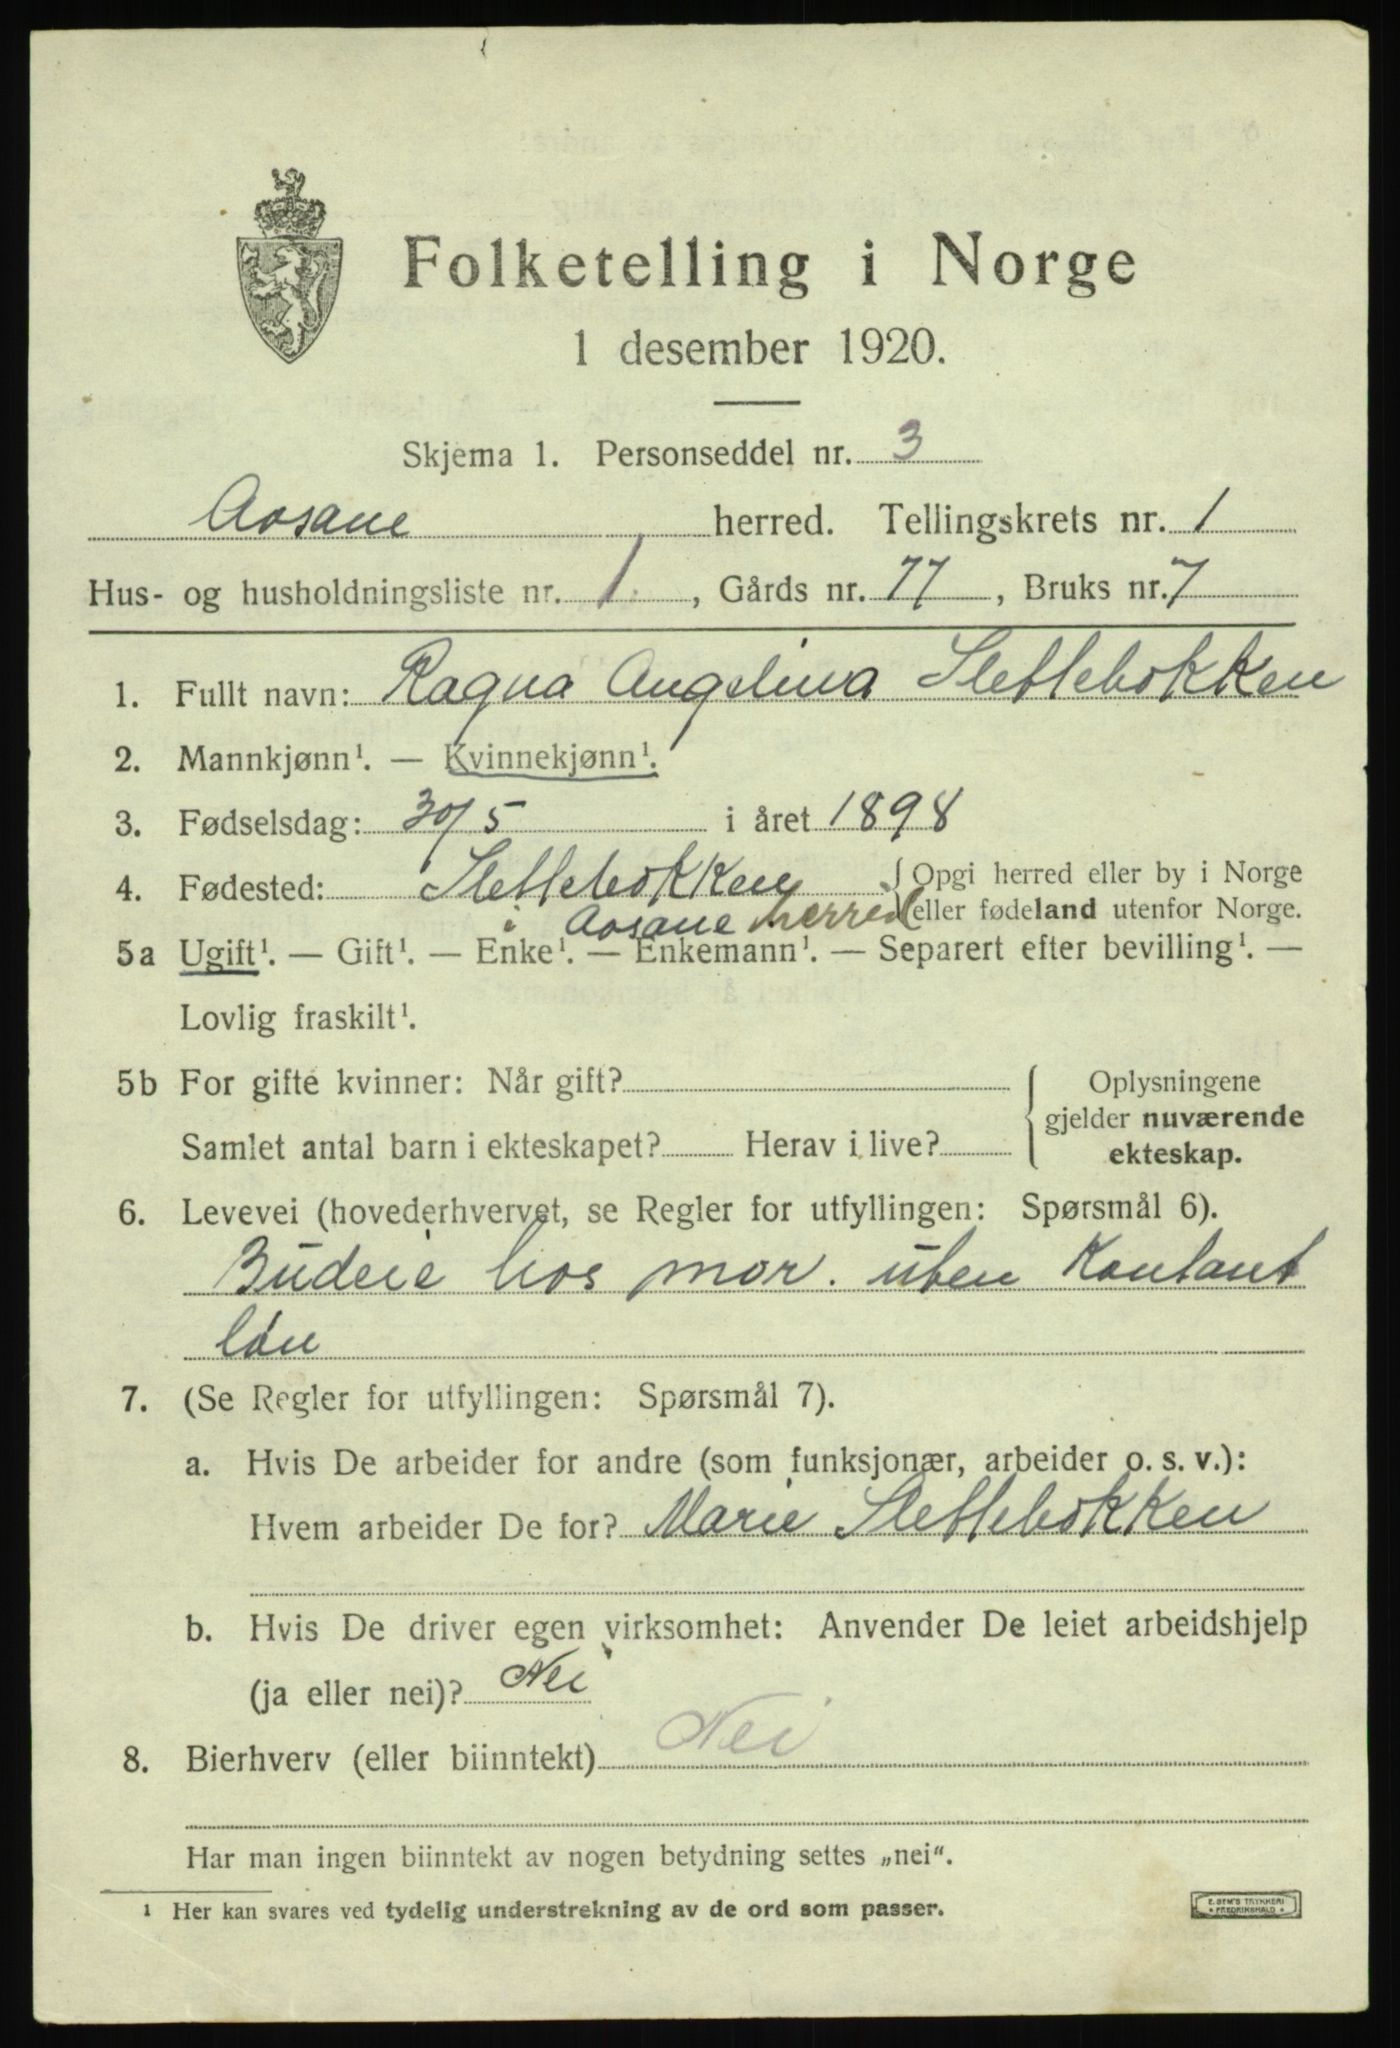 Folketelling i Norge
1 desember 1920.
Skjema 1. Personseddel nr. 3
Aosane herred. Tellingskrets nr. 1
Hus- og husholdningsliste nr. 1. , Gårds nr. 77 , Bruks nr. 7
1. Fullt navn: Ragna Angelina Slettebokken
2. Mannkjønn¹. — Kvinnekjønn¹.
3. Fødselsdag: 30/5 i året 1898
4. Fødested: Slettebokken { Opgi herred eller by i Norge
i Aosane herred eller fødeland utenfor Norge.
5a Ugift¹. — Gift¹. — Enke¹. — Enkemann¹. — Separert efter bevilling¹. —
Lovlig fraskilt¹.
5b For gifte kvinner: Når gift? { Oplysningene
gjelder nuværende
Samlet antal barn i ekteskapet? Herav i live? ekteskap.
6. Levevei (hovederhvervet, se Regler for utfyllingen: Spørsmål 6).
Budeie hos mor. uten Kontant
løn
7. (Se Regler for utfyllingen: Spørsmål 7).
a. Hvis De arbeider for andre (som funksjonær, arbeider o. s. v.):
Hvem arbeider De for? Marie Slettebokken
b. Hvis De driver egen virksomhet: Anvender De leiet arbeidshjelp
(ja eller nei)? Nei
8. Bierhverv (eller biinntekt) Nei
Har man ingen biinntekt av nogen betydning settes „nei".
¹ Her kan svares ved tydelig understrekning av de ord som passer.
E. SEM'S TRYKKERI
* FREDRIKSHALD *